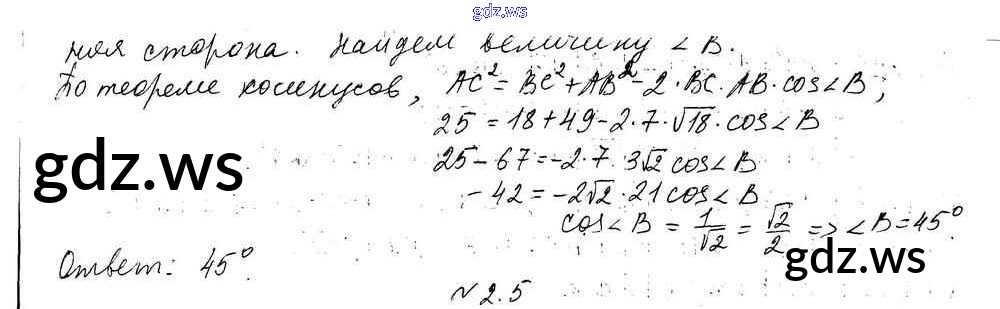 gdz.ws
ная сторона. Найдем величину ∠B.
По теореме косинусов, AC² = BC² + AB² - 2·BC·AB·cos∠B;
25 = 18 + 49 - 2·7·√18·cos∠B
25 - 67 = -2·7·3√2 cos∠B
gdz.ws
-42 = -2√2·21cos∠B
cos∠B = 1/√2 = √2/2 => ∠B = 45°
Ответ: 45°.
gdz.ws
№2.5